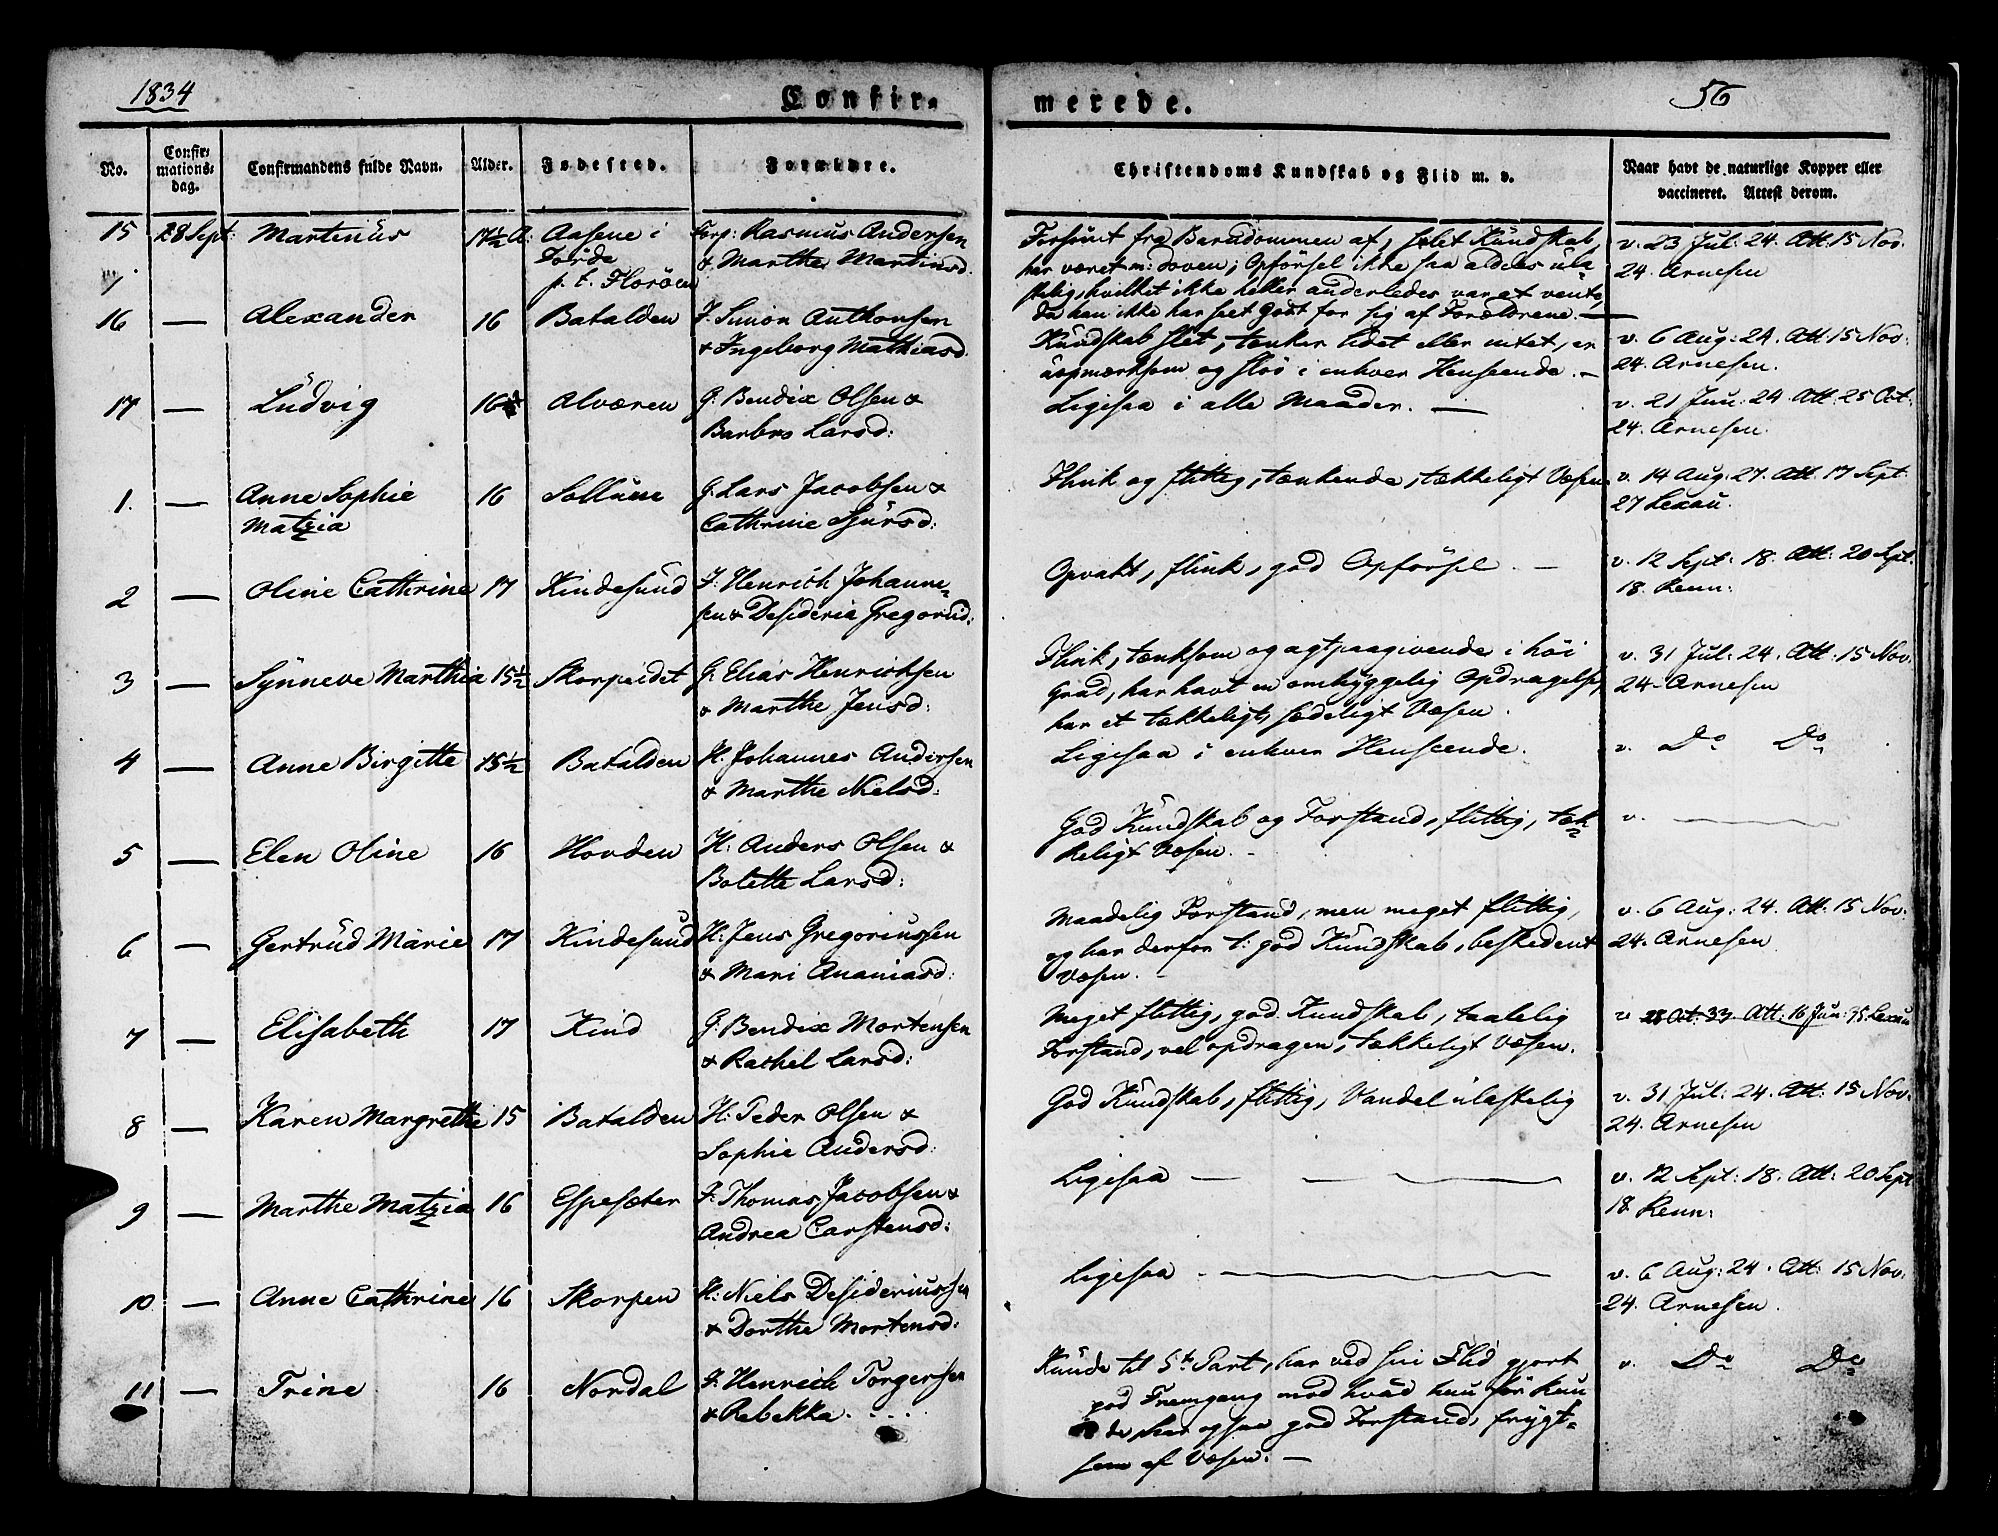 1834
Confir-
merede.
56
No.
Confir-
mations-
dag.
Confirmandens fulde Navn.
Alder.
Fødested.
Forældre.
Christendoms Kundskab og Flid m. v.
Naar havt de naturlige Kopper eller
vaccineret. Attest derom.
15 28 Sept: Martinus 17½ A: Aasene i
Förde
p. t. Floröen
Forp: Rasmus Andersen
& Marthe Martinsd.
Forsömt fra Barndommen af, slet Kundskab,
har været m: doven; Opförsel ikke saa aldeles ula-
stelig, hvilket ikke heller anderledes var at vente,
da han ikke har seet Godt for sig af Forældrene. —
v. 23 Jul: 24. Att: 15 Nov.
24. Arnesen
16 — Alexander 16 Batalden
F. Simon Anthonsen
& Ingeborg Mathiasd.
Kundskab slet, tænker lidet eller intet, er
uopmærksom og slöv i enhver Henseende. —
v. 6 Aug: 24. Att: 15 Nov:
24. Arnesen.
17 — Ludvig 16 Alværen
G. Bendix Olsen &
Barbro Larsd:
Ligesaa i alle Maader. —
v. 21 Jun: 24. Att: 25 Oct:
24. Arnesen.
1. — Anne Sophie
Matzia
16 Sollune
G. Lars Jacobsen &
Cathrine Sjursd:
Flink og flittig, tænkende, tækkeligt Væsen
v. 14 Aug: 27. Att: 17 Sept:
27 Lexau.
2 — Oline Cathrine 17 Kindesund
F. Henrich Johanne-
sen & Desideria Gregorsd:
Opvakt, flink, god Opförsel. —
v. 12 Sept: 18. Att: 20 Sept:
18. Renn:
3 — Synneve Marthia 15½ Skorpeidet
G. Elias Henrichsen
& Marthe Jensd:
Flink, tænksom og agtpaagivende i höi
Grad, har havt en omhyggelig Opdragelse,
har et tækkeligt, sædeligt Væsen.
v. 31 Jul: 24. Att: 15 Nov.
24. Arnesen
4 — Anne Birgitte 15½ Batalden
H. Johannes Andersen
& Marthe Nielsd:
Ligesaa i enhver Henseende.
v. Do Do
5 — Elen Oline 16 Hovden
H: Anders Olsen &
Bolette Larsd:
God Kundskab og Forstand, flittig, tæk-
keligt Væsen. —
v. —
6 — Gertrud Marie 17 Kindesund
H: Jens Gregoriussen
& Mari Ananiasd:
Maadelig Forstand, men meget flittig,
og har derfor t: god Kundskab, beskedent
Væsen. —
v. 6 Aug: 24. Att: 15 Nov:
24. Arnesen
7 — Elisabeth 17 Kind
G: Bendix Mortensen
& Rachel Larsd:
Meget flittig, god Kundskab, taalelig
Forstand, vel opdragen, tækkeligt Væsen.
v 28 Oct: 33 Att: 16 Jun: 35 Lexau
8 — Karen Margrethe 15 Batalden
H: Peder Olsen &
Sophie Andersd:
God Kundskab, flittig, Vandel ulastelig
v. 31 Jul: 24. Att: 15 Nov.
24. Arnesen
9 — Marthe Matzia 16 Espesæter
F: Thomas Jacobsen &
Andrea Carstensd:
Ligesaa —
v. 12 Sept: 18. Att: 20 Sept
18 Renn:
10 — Anne Cathrine 16 Skorpen
H: Niels Desideriussen
& Dorthe Mortensd:
Ligesaa. —
v. 6 Aug: 24. Att: 15 Nov:
24. Arnesen.
11 — Trine 16 Nordal
F. Henrich Torgersen
& Rebekka. . . .
Kunde til 5te Part, har ved sin Flid gjort
god Fremgang mod hvad hun för kun-
de, har ogsaa god Forstand, frygt-
som af Væsen. —
v. Do Do